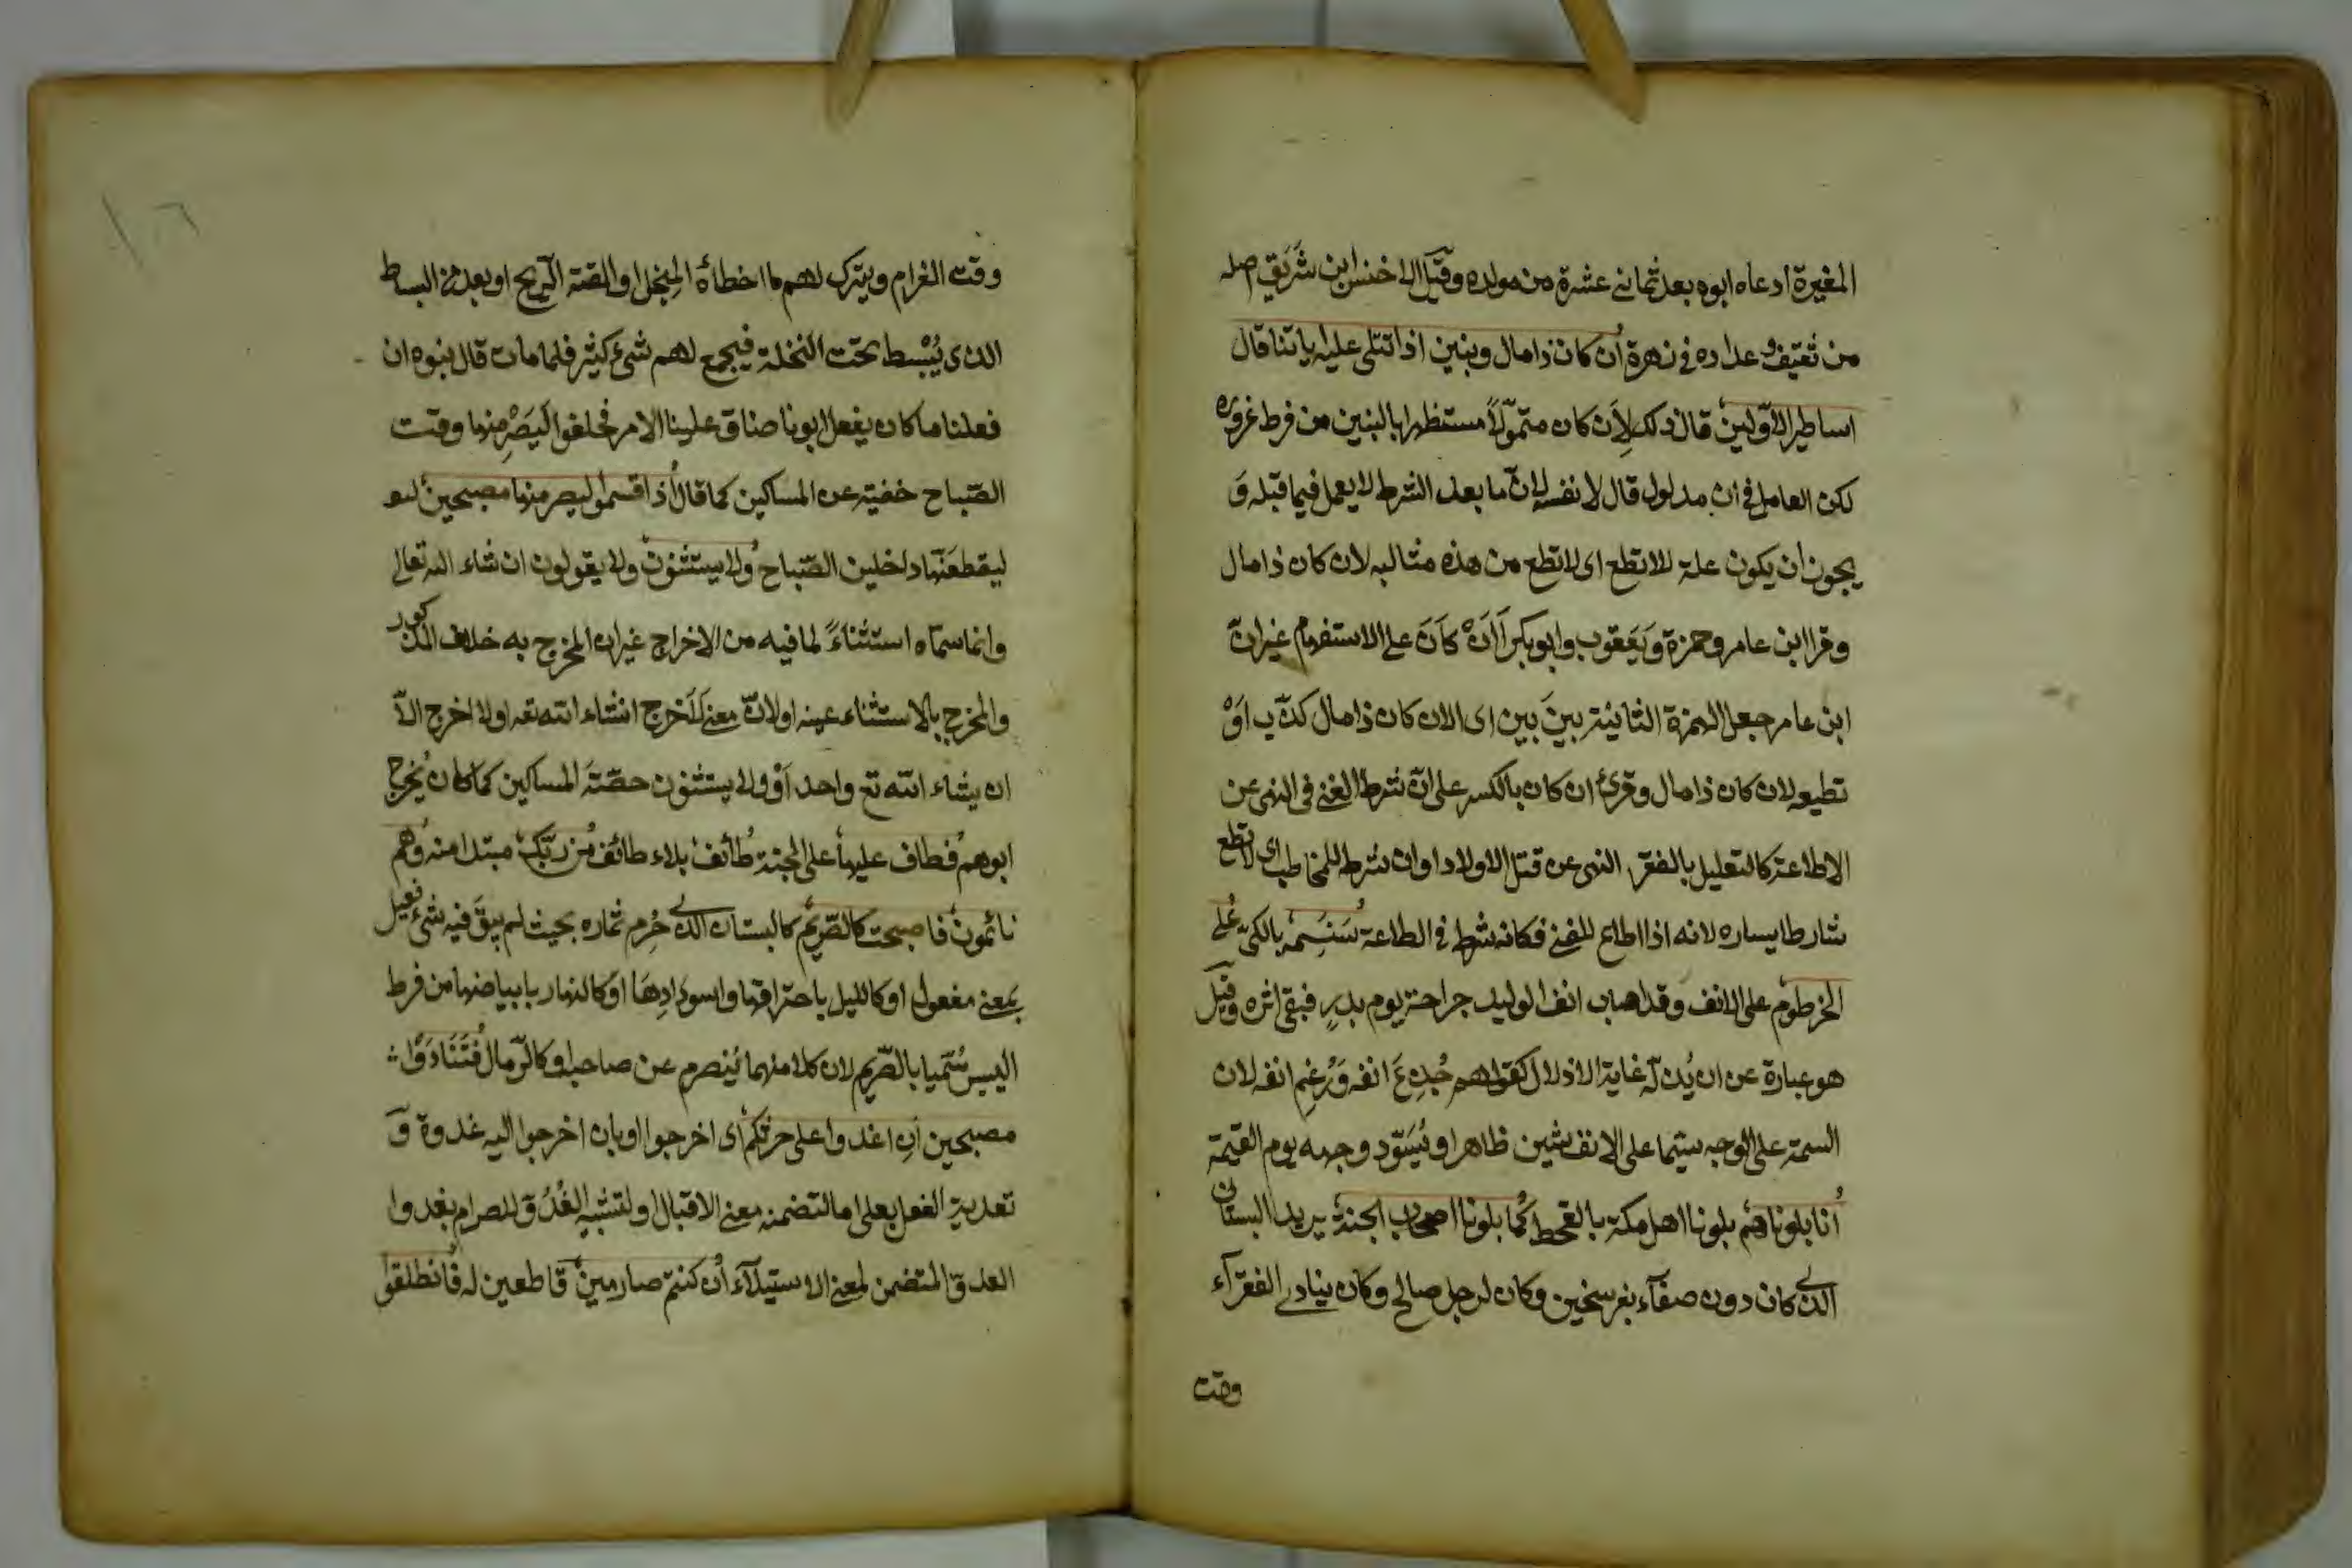 المغيرة ادعاه ابوه بعد ثمانى عشرة من مولده وقيل الاخنس ابن شَرَيق اصله
من ثقيف وعداده فى زهرة أن كان ذا مال وبنين اذا تتلى عليه اياتنا قال
اساطير الاوّلين قال ذلك لِاَن كان متموّلاً مستظهرا بالبنين من فرط غروره
لكن العامل فى ان مدلول قال لا نفسه لانّ ما بعد الشرط لا يعمل فيما قبله وَ
يجوز ان يكون علة للا تطع اى لا تطع من هذه مثالبه لان كان ذا مال
وقرا ابن عامر وحمزة وَيَعقوب وابو بكر أَاَنْ كاَنَ على الاستفهام غير انّ
ابن عامر جعل الهمزة الثانية بينَ بين اى الان كان ذا مال كذّب اَوْ
تطيعه لان كان ذا مال وقرئ ان كان بالكسر على انّ شرط الغنى فى النهى عن
الاطاعة كالتعليل بالفقر النهى عن قتل الاولاد او ان شرطه للمخاطب اى لا تطع
شارطا يساره لانه اذا اطاع للغنى فكانه شرط فى الطاعة سَنَسِمُه بالكىّ عَلى
الخرطوم على الانف وقد اصاب انف الوليد جراحة يوم بدرٍ فبقى اثره وقيل
هو عبارة عن ان يُذلّه غاية الاذلال كقولهم جُدِعَ انفه وَرُغِم انفه لان
السمة على الوجه سيّما على الانف شين ظاهر او نُسَوّد وجهه يوم القيمة
اُنا بلوناهم بلونا اهل مكة بالقحط كُما بلونا اصحاب الجنة يريد البستان
الذى كان دون صنعآء بفرسخين وكان لرجل صالح وكان ينادى الفقرآء
وقت
١٠٦
وقت الغرام ويترك لهم ما اخطأهٔ المِنجل او القته الرّيح او بعد من البساط
الذى يُبْسط تحت النخلة فيجمع لهم شئ كثير فلما مات قال بنوه ان
فعلنا ما كان يفعل ابونا ضاق علينا الامر فحلفوا ليَصْرِمنها وقت
الصّباح خفية عن المساكين كما قال اُذ اقسموا ليصرمنها مصبحين
ليقطعَنّها داخلين الصّباح وُلا يستثنون ولا يقولون ان شاء الله تعالى
وانما سمّاه استثناءً لما فيه من الاخراج غير ان المخرج به خلاف المذكور
والمخرج بالاستثناء عينه او لانّ معنى لَاَخرج انشاء الله تعه ولا اخرج الاّ
ان يشاء الله تع واحد اَوْ ولا يستثنون حصّتَه المساكين كما كان يُخرج
ابوهم فُطاف عليها على الجنة طُائف بلاء طائف مُن ربّك مبتدا منه وُهم
نائمون فاصبحت كالصّريم كالبستان الذى صُرِم ثماره بحيث لم يبقَ فيه شئ فعيل
بمعنى مفعول او كالليل باحتراقها واسوِدادِهَا اوَ كالنهار بابيضاضها من فرط
اليبس سُمّيا بالصّريم لان كلا منهما يُنصرم عن صاحبه او كالرّمال فُتَنَادَوْا
مصبحين اَنِ اغدوا على حرثكم اى اخرجوا او بان اخرجوا اليه غدوة وَ
تعدية الفعل بعلى اما لتضمنه معنى الاقبال او لتشبيه الغُدُوّ للصرام بغدوا
العدوّ المتضمن لمعنى الاستيلآء اُن كنتم صارمين قاطعين له فُانطلقوا